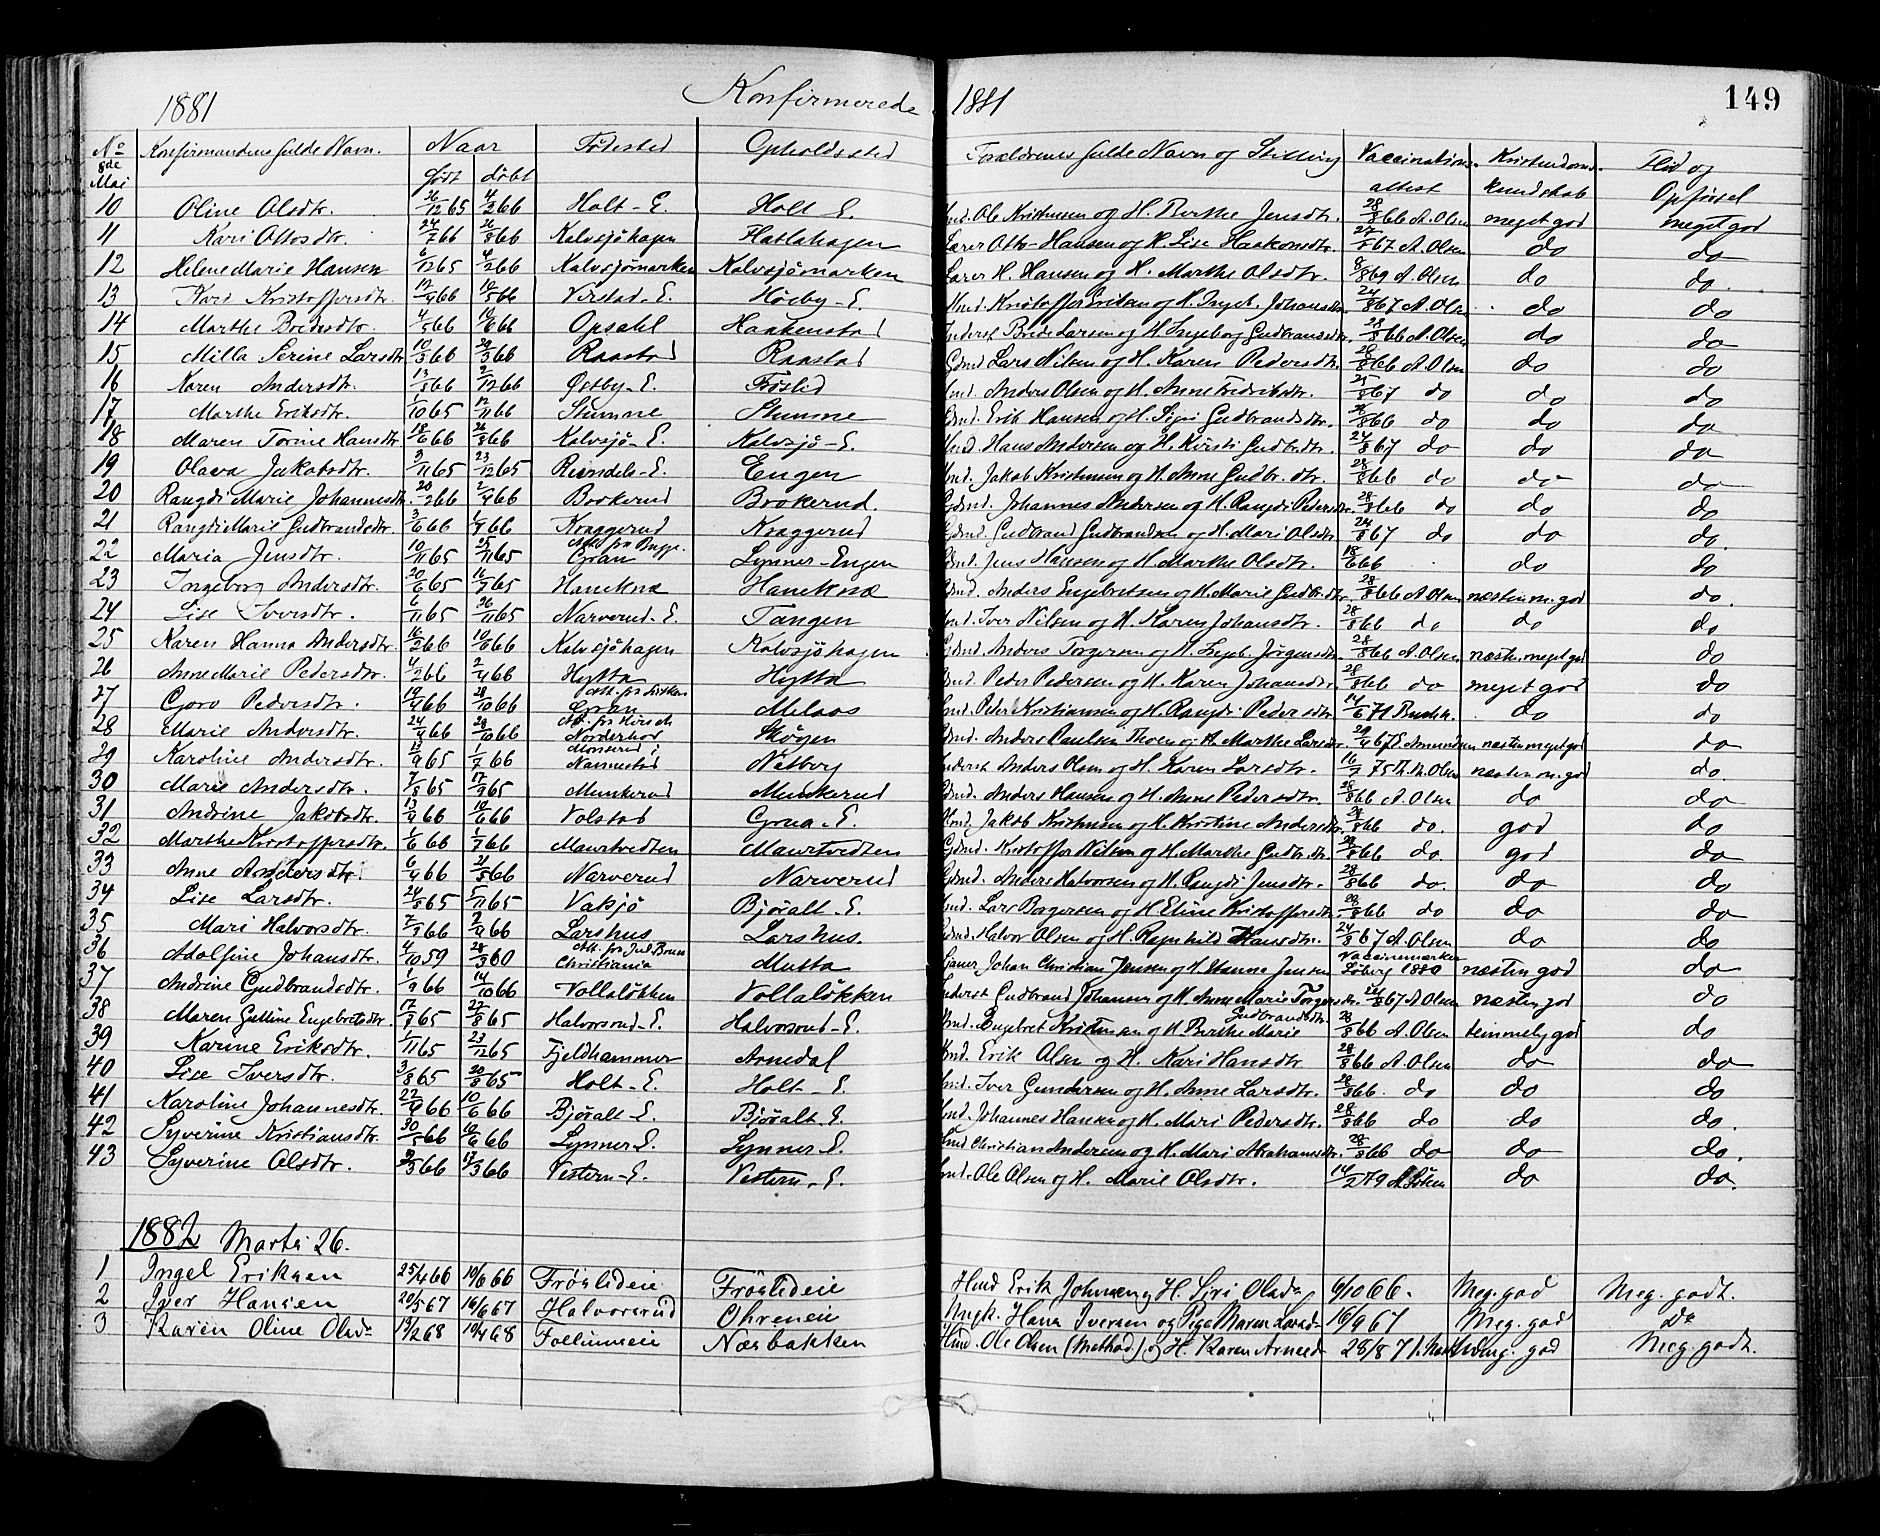 1881 Konfirmerede 1881 149
No Konfirmandens fulde Navn. Naar Fødested Opholdssted Forældrenes fulde Navn og Stilling Vaccinations- Kristendoms- Flid og
8de Mai født døbt attest kundskab Opførsel
10 Oline Olsdtr. 26/12 65 4/2 66 Holt-E. Holt-E. Ole Kristensen og H. Berthe Jensdtr. 28/8 66 A. Olsen meget god meget god
11 Kari Ottosdtr. 24/7 66 26/8 66 Kalvsjöhagen Flatlahagen Otto Hansen og H. Lise Haakonsdtr. 27/8 67 A. Olsen do do
12 Helene Marie Hansen 6/12 65 4/2 66 Kalvsjömarken Kalvsjömarken H. Hansen og H. Marthe Olsdtr. 8/8 69 A. Olsen do do.
13 Kari Kristoffersdtr. 17/4 66 10/5 66 -E. Höiby-E. Kristoffer Eriksen og H. Ingeb. Johansdtr. 24/8 67 A. Olsen do do
14 Marthe Bredesdtr. 4/5 66 10/6 66 Opsahl Haakenstad Brede Larsen og H. Ingeborg Gudbrandsdtr. 28/8 66 A. Olsen do do
15 Milla Serine Larsdtr 10/3 66 29/3 66 Raastad Raastad Gdmd Lars Nilsen og H. Karen Pedersdtr. 28/8 66 A. Olsen do do
16 Karen Andersdtr. 13/8 66 2/12 66 Østby-E. Fröslid Anders Olsen og H. Anne Fredriksdtr. 25/8 67 do do do
17 Marthe Eriksdtr. 1/10 65 12/11 66 Stumne Stumne Gdmd. Erik Hansen og H. Sigri Gudbrandsdtr. 28/8 66 do do do
18 Maren Torine Hansdtr 18/6 66 26/8 66 Kalvsjö-E. Kalvsjö-E. Hans Andersen og H. Kirsti Gudbrdtr. 24/8 67 do do do
19 Olava Jakobsdtr. 3/11 65 23/12 65 -E. Engen Jakob Kristensen og H. Anne Gudbr.dtr. 28/8 66 do do do
20 Rangdi Marie Johannesdtr 20/2 66 2/4 66 Brokerud Brokerud. Gdmd. Johannes Andersen og H. Rangdi Pedersdtr. 28/8 66 do do do
21 Rangdi Marie Gudbrandsdtr. 3/6 66 1/7 66 Kraggerud Kraggerud Gdmd. Gudbrand Gudbrandsen og H. Mari Olsdtr. 24/8 67 do do do.
22 Maria Jensdtr. 10/11 65 25/11 65 Att. fra Gran Lynner-Engen Jens Hansen og H. Marthe Olsdtr. 18/6 66 do do
23 Ingeborg Andersdtr. 20/6 65 16/7 65 Haneknæ Haneknæ Gdmd. Anders Engebretsen og H. Marie Gudbrdtr. 28/8 66 A Olsen næsten m. god do.
24 Lise Iversdtr. 6/11 65 26/11 65 Narverud-E. Tangen Iver Nilsen og H. Karen Johansdtr. 28/8 66 do do do
25 Karen Hanna Andersdtr. 16/2 66 10/6 66 Kalvsjöhagen Kalvsjöhagen Gdmd. Anders Torgersen og H. Ingeb. Jörgensdtr. 28/8 66 A. Olsen næsten meget god do
26 Anne Marie Pedersdtr. 4/2 66 2/4 66 Hytta Hytta Peder Pedersen og H. Karen Johansdtr. 28/8 66 do meget god do
27 Goro Pedersdtr. 19/4 66 28/10 66 Att. fra Gran Melaas Peter Kristiansen og H. Rangdi Pedersdtr 14/6 71 do do
28 Marie Andersdtr. 24/4 66 29/10 66 Att. fra Norderhov Skögen Anders Paulsen Thoen og H. Marthe Larsdtr. 29/4 67 E. Amundsen næsten meget god do
29 Karoline Andersdtr. 13/9 65 1/7 66 i Nannestad Næsberg Anders Olsen og H. Karen Larsdtr. 16/7 75 Olsen næsten m. god do.
30 Marie Andersdtr. 7/8 65 17/9 65 Munkerud Munkerud Gdmd. Anders Hansen og H. Anne Pedersdtr. 28/8 66 A. Olsen do do
31 Andrine Jakobsdtr. 13/4 66 10/6 66 Volstad Grua-E. Jakob Kristensen og H. Kristine Andersdtr. 28/8 66 do. god do
32 Marthe Kristoffersdtr. 1/6 66 1/7 66 Maurtvedten Maurtvedten Gdmd. Kristoffer Nilsen og H. Marthe Gudbr.dtr. 28/8 66 do. god do
33 Anne Andersdtr. 6/4 66 21/5 66 Narverud Narverud Gdmd. Anders Halvorsen og H. Rangdi Jensdtr. 28/8 66 do. do do
34 Lise Larsdtr. 24/8 65 5/11 65 Vaksjö Björalt-E. Lars Borgersen og H Eline Kristoffersdtr. 28/8 66 do do do
35 Mari Halvorsdtr. 7/3 66 2/4 66 Larshus Larshus. Gdmd. Halvor Olsen og H. Ragnhild Hansdtr. 24/8 67 A. Olsen do do
36 Adolfine Johansdtr. 4/10 59 28/3 60 Att. fra Jul. Bruun Christiania Mutta Johan Christian Jensen og H. Hanne Jensen Vaccinemærker Söberg 1880 næsten god do
37 Andrine Gudbrandsdtr. 1/9 66 14/10 66 Vollalökken Vollalökken Gudbrand Johansen og H. Anne Marie Torgersdtr 24/8 67 A Olsen næsten god do
38 Maren Gulline Engebretsdtr. 17/7 65 22/8 65 Halvorsrud-E. Halvorsrud-E. Engebret Kristensen og H. Berthe Marie Gudbrandsdtr. 28/8 66 A. Olsen temmelig god do
39 Karine Eriksdtr. 1/11 65 23/12 65 Fjeldhammer Arnedal Erik Olsen og H. Kari Hansdtr 28/8 66 A. Olsen do do
40 Lise Iversdtr. 3/8 65 20/8 65 Holt-E. Holt-E. Iver Gundersen og H. Anne Larsdtr. 28/8 66. do do do
41 Karoline Johannesdtr. 22/4 66 10/6 66 Björalt-E. Björalt-E. Johannes Hansen og H. Mari Pedersdtr. 28/8 66 do do do
42 Syverine Kristiansdtr. 30/5 66 10/6 66 Lynner-E. Lynner-E. Christian Andersen og H. Mari Abrahamsdtr. 28/8 66 do do do.
43 Syverine Olsdtr. 2/3 66 17/3 66 Vestern-E. Vestern-E. Ole Olsen og H. Marie Olsdtr. 14/2 79 do do.
1882 Marts 26.
1 Ingel Eriksen 25/4 66 10/6 66 Fröslideie Fröslideie Hmd Erik Johnsen og H. Siri Olsdr 9/10 66. Meg. god Meg. godt.
2 Iver Hansen 20/5 67 16/6 67 Halvorsrud Ohreneie Ungk. Hans Iversen og Pige Maren Larsd- 16/9 67 Meg. god Do
3 Karen Oline Olsdr 19/2 68 10/4 68 Næsbakken Hmd. Ole Olsen (Mathod) og H. Karen Arnesd- 28/8 71 meg. god Meg. godt.